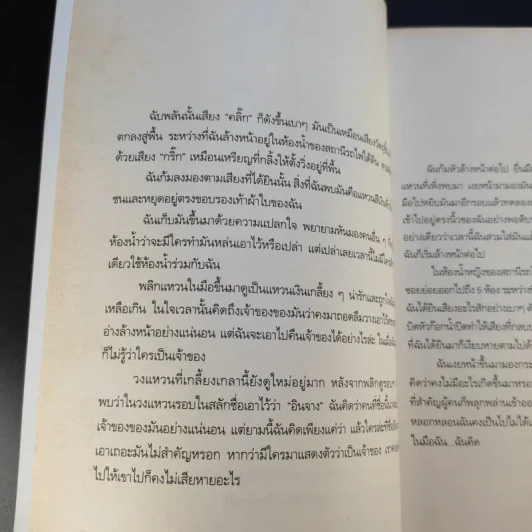 ฉับพลันนั้นเสียง "คลิ๊ก" ก็ดังขึ้นเบาๆ มันเป็นเหมือนเสียงวัตถุ
ตกลงสู่พื้น ระหว่างที่ฉันล้างหน้าอยู่ในห้องน้ำของสถานีรถไฟใต้ดิน
ด้วยเสียง "กริ๊ก" เหมือนเหรียญที่กลิ้งให้ตั้งวิ่งอยู่ที่พื้น
ฉันก้มลงมองตามเสียงที่ได้ยินนั้น สิ่งที่ฉันพบมันคือแหวนสีเงิน
ชนและหยุดอยู่ตรงขอบรองเท้าผ้าใบของฉัน
ฉันเก็บมันขึ้นมาด้วยความแปลกใจ พยายามหันมองคนอื่น ๆ
ห้องน้ำว่าจะมีใครทำมันหล่นเอาไว้หรือเปล่า แต่เปล่าเลยเวลานี้ไม่มี
เดียวใช้ห้องน้ำร่วมกับฉัน
พลิกแหวนในมือขึ้นมาดูเป็นแหวนเงินเกลี้ยง ๆ น่ารักและถูก
เหลือเกิน ในใจเวลานั้นคิดถึงเจ้าของของมันว่าคงมาถอดลืมวางเอาไว้
อ่างล้างหน้าอย่างแน่นอน แต่ฉันจะเอาไปคืนเจ้าของได้อย่างไรล่ะ
ก็ไม่รู้ว่าใครเป็นเจ้าของ
วงแหวนที่เกลี้ยงเกลานี้ยังดูใหม่อยู่มาก หลังจากพลิกดูรอบๆ
พบว่าในวงแหวนรอบในสลักชื่อเอาไว้ว่า "อินจาง" ฉันคิดว่าคนที่ชื่อนี้
เจ้าของของมันอย่างแน่นอน แต่ยามนี้ฉันคิดเพียงแค่ว่า แล้วใครล่ะที่ชื่อ
เอาเถอะมันไม่สำคัญหรอก หากว่ามีใครมาแสดงตัวว่าเป็นเจ้าของ
ไปให้เขาไปก็คงไม่เสียหายอะไร
ฉันก้มหัวล้างหน้าต่อไป
แหวนที่เพิ่งพบมา เงยหน้ามามอง
มือไปหยิบมันมาอีกรอบแล้วทดลอง
เข้าไปอยู่ตรงนิ้วของฉันอย่างพอดี
อย่างเดียวว่าเวลานี้ฉันสวมใส่มัน
ฉันก็เริ่มล้างหน้าต่อไป
ในห้องน้ำหญิงของสถานีรถ
ซอยย่อยออกไปถึง 5 ห้อง ระหว่าง
ฉันได้ยินเสียงอะไรสักอย่างเบาๆ
บิดหัวก๊อกน้ำปิดทำให้เสียงที่
ที่ฉันได้ยินมาก็เงียบหายตามไปด้วย
ฉันเงยหน้าขึ้นมามองกระ
คิดว่าคงไม่มีอะไรเกิดขึ้นมาหรอก
ที่สำคัญผู้คนก็พลุกพล่านเข้าออก
หลอกหลอนฉันคงเป็นไปไม่ได้
ในมือฉัน...ฉันคิด